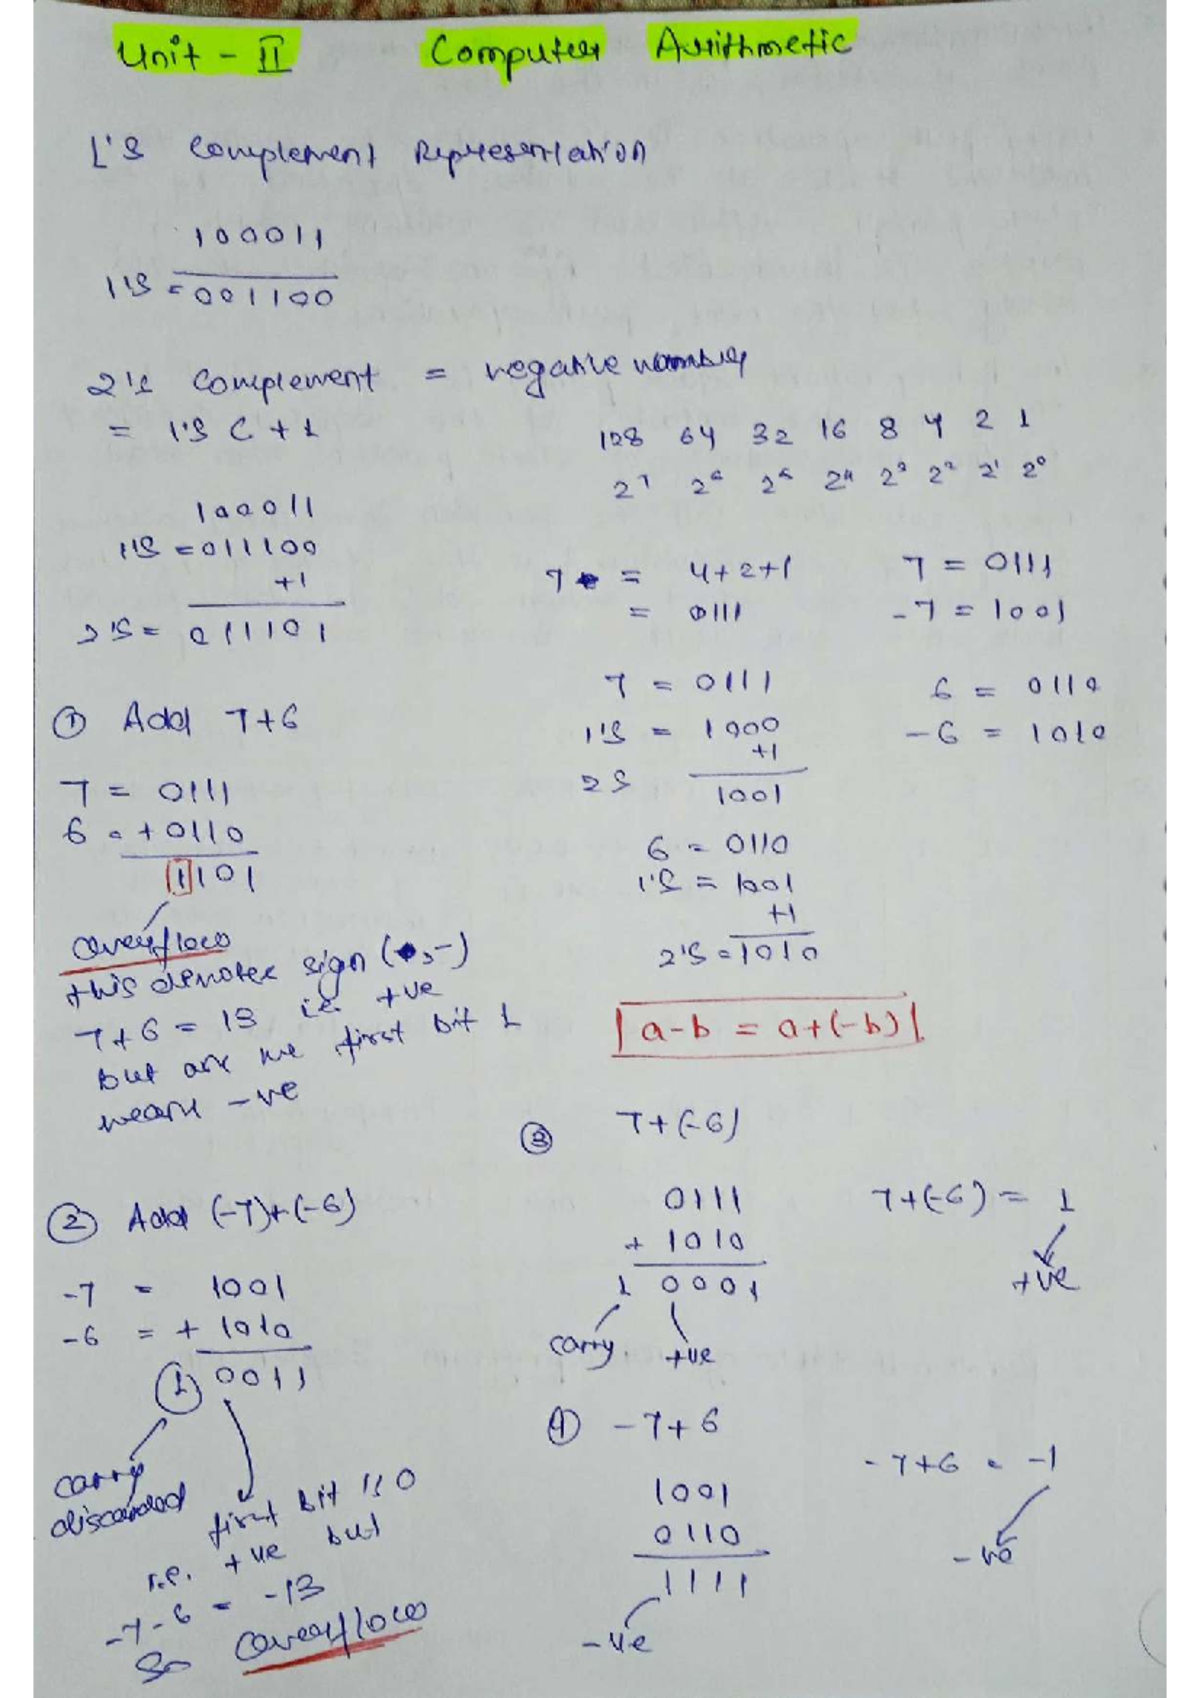 Unit - II Computer Arithmetic
1's Complement Representation
100011
1's = 001100
2's Complement = negative number
= 1's C + 1
100011
1's = 011100
+1
2's = 011101
128 64 32 16 8 4 2 1
2⁷ 2⁶ 2⁵ 2⁴ 2³ 2² 2¹ 2⁰
7 = 4+2+1
= 0111
7 = 0111
-7 = 1001
7 = 0111
1's = 1000
+1
2S 1001
6 = 0110
-6 = 1010
6 = 0110
1's = 1001
+1
2's = 1010
① Add 7+6
7 = 0111
6 = +0110
1101
overflow
this denotes sign (+,-)
7+6 = 13 i.e. +ve
but are we first bit 1
means -ve
a-b = a+(-b)
② Add (-7)+(-6)
-7 = 1001
-6 = + 1010
1 0011
carry
discarded
first bit is 0
i.e. +ve but
-7-6 = -13
So overflow
③ 7+(-6)
0111
+ 1010
1 0001
carry +ve
7+(-6) = 1
+ve
④ -7+6
1001
0110
1111
-ve
-7+6 = -1
-ve